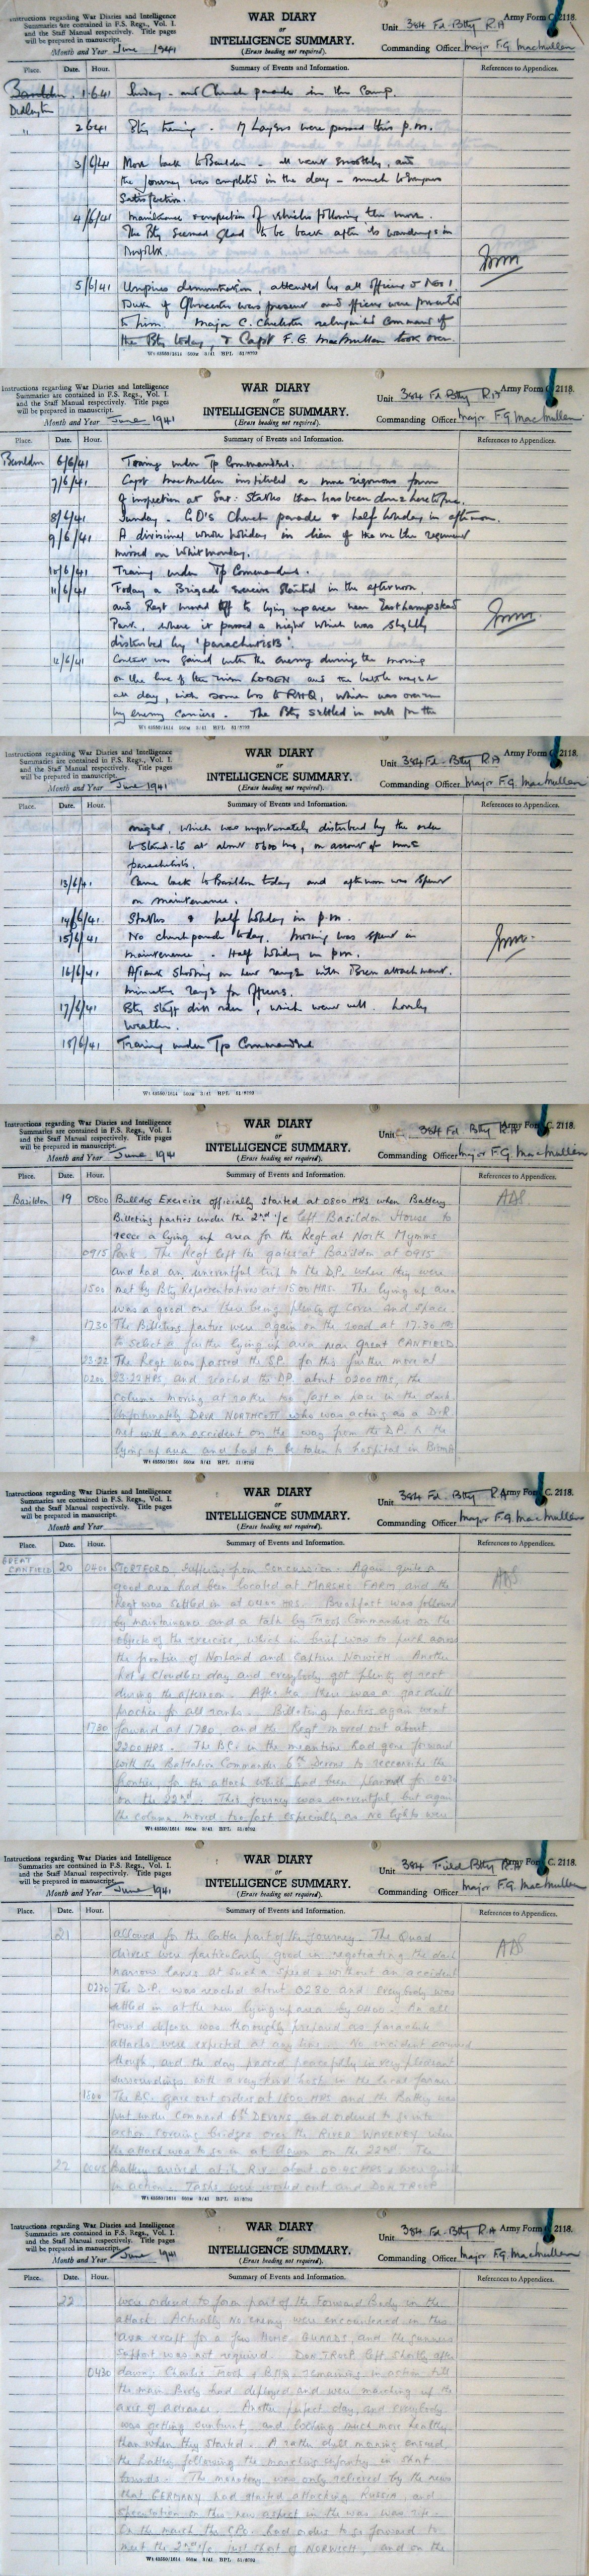 Instructions regarding War Diaries and Intelligence
Summaries are contained in F.S. Regs., Vol. I.
and the Staff Manual respectively. Title pages
will be prepared in manuscript.
Month and Year June 1941
WAR DIARY
or
INTELLIGENCE SUMMARY.
(Erase heading not required).
Army Form C. 2118.
Unit 384 Fd. Bty R.A
Commanding Officer Major F.G. MacMullen
Place. Date. Hour. Summary of Events and Information. References to Appendices.
1.6.41 Sunday - and Church parade in the Camp.
Didlington
" 2.6.41 Bty training. 17 Layers were passed this p.m.
3/6/41 Move back to Basildon - all went smoothly, and
the journey was completed in the day - much to
satisfaction.
4/6/41 Maintenance & inspection of vehicles following the move.
The Bty seemed glad to be back after its wanderings in
Norfolk.
5/6/41 Umpires demonstration, attended by all officers & Nos 1.
Duke of Gloucester was present and officers were presented
to him. Major C. relinquished command of
the Bty today, & Capt F.G. MacMullen took over.
Instructions regarding War Diaries and Intelligence
Summaries are contained in F.S. Regs., Vol. I.
and the Staff Manual respectively. Title pages
will be prepared in manuscript.
Month and Year June 1941
WAR DIARY
or
INTELLIGENCE SUMMARY.
(Erase heading not required).
Army Form C. 2118.
Unit 384 Fd Bty R.A
Commanding Officer Major F.G. MacMullen
Place. Date. Hour. Summary of Events and Information. References to Appendices.
Basildon 6/6/41 Training under Tp Commanders.
7/6/41 Capt MacMullen instituted a more rigorous form
of inspection at Sat: Stables than has been done heretofore.
8/6/41 Sunday - C.O's Church parade & half holiday in afternoon.
9/6/41 A divisional whole holiday in lieu of the one the regiment
missed on Whitmonday.
10/6/41 Training under Tp Commanders.
11/6/41 Today a Brigade exercise started in the afternoon,
and Regt moved off to lying up area near Easthampstead
Park, where it passed a night which was slightly
disturbed by 'parachutists'.
12/6/41 Contact was gained with the enemy during the morning
on the line of the river LODEN and the battle waged
all day, with some loss to RHQ, which was overrun
by enemy carriers. The Bty settled in well for the
Instructions regarding War Diaries and Intelligence
Summaries are contained in F.S. Regs., Vol. I.
and the Staff Manual respectively. Title pages
will be prepared in manuscript.
Month and Year June 1941
WAR DIARY
or
INTELLIGENCE SUMMARY.
(Erase heading not required).
Army Form C. 2118.
Unit 384 Fd. Bty R.A
Commanding Officer Major F.G. MacMullen
Place. Date. Hour. Summary of Events and Information. References to Appendices.
night, which was unfortunately disturbed by the order
to stand-to at about 0300 hrs, on account of more
parachutists.
13/6/41 Came back to Basildon today and afternoon was spent
on maintenance.
14/6/41 Stables & half holiday in p.m.
15/6/41 No church parade today. Morning was spent in
maintenance. Half holiday in p.m.
16/6/41 A/Tank shooting on range with Bren attachment.
Miniature range for officers.
17/6/41 Bty staff drill order, which went well. Lovely
weather.
18/6/41 Training under Tp Commanders
Instructions regarding War Diaries and Intelligence
Summaries are contained in F.S. Regs., Vol. I.
and the Staff Manual respectively. Title pages
will be prepared in manuscript.
Month and Year June 1941
WAR DIARY
or
INTELLIGENCE SUMMARY.
(Erase heading not required).
Army Form C. 2118.
Unit 384 Fd Bty R.A
Commanding Officer Major F.G MacMullen
Place. Date. Hour. Summary of Events and Information. References to Appendices.
Basildon 19 0800 Bulldog Exercise officially started at 0800 HRS when Battery ADS
Billeting parties under the 2nd i/c left Basildon House to
recce a lying up area for the Regt at North Mymms
0915 Park. The Regt left the gates at Basildon at 0915
and had an uneventful trip to the D.P. where they were
1500 met by Bty Representatives at 1500 HRS. The lying up area
was a good one there being plenty of cover and space.
1730 The Billeting parties were again on the road at 17.30 HRS
to select a further lying up area near Great CANFIELD.
23.22 The Regt was passed the S.P. for this further move at
0200 23.22 HRS, and reached the D.P. about 0200 HRS, the
column moving at rather too fast a pace in the dark.
Unfortunately Driver NORTHCOTT who was acting as a D.R.
met with an accident on the way from the D.P. to the
lying up area and had to be taken to hospital in Bishops
Instructions regarding War Diaries and Intelligence
Summaries are contained in F.S. Regs., Vol. I.
and the Staff Manual respectively. Title pages
will be prepared in manuscript.
Month and Year
WAR DIARY
or
INTELLIGENCE SUMMARY.
(Erase heading not required).
Army Form C. 2118.
Unit 384 Fd. Bty R.A
Commanding Officer Major F.G. MacMullen
Place. Date. Hour. Summary of Events and Information. References to Appendices.
GREAT CANFIELD 20 0400 STORTFORD, suffering from concussion. Again quite a ADS
good area had been located at MARSHS FARM and the
Regt was settled in at 0400 HRS. Breakfast was followed
by maintainance and a talk by Troop Commanders on the
objects of the exercise, which in brief was to push across
the frontier of Norland and Capture NORWICH. Another
hot & cloudless day and everybody got plenty of rest
during the afternoon. After tea there was a gas drill
practice for all ranks. Billeting parties again went
1730 forward at 1730, and the Regt moved out about
2200 HRS. The B.C. in the meantime had gone forward
with the Battalion Commander 6th Devons to reconnoitre the
frontier, for the attack which had been planned for
on the 22nd. This journey was uneventful but again
the column moved too fast especially as no lights were
Instructions regarding War Diaries and Intelligence
Summaries are contained in F.S. Regs., Vol. I.
and the Staff Manual respectively. Title pages
will be prepared in manuscript.
Month and Year June 1941
WAR DIARY
or
INTELLIGENCE SUMMARY.
(Erase heading not required).
Army Form C. 2118.
Unit 384 Field Bty R.A
Commanding Officer Major F.G. MacMullen
Place. Date. Hour. Summary of Events and Information. References to Appendices.
21 allowed for the latter part of the journey. The Quad ADS
drivers were particularly good in negotiating the dark
narrow lanes at such a speed & without an accident
0230 The D.P. was reached about 0230 and everybody was
settled in at the new lying up area by 0400. An all
round defence was thoroughly prepared as parachute
attacks were expected at any time. No incident occurred
though, and the day passed peacefully in very pleasant
surroundings with a very kind host in the local farmer
1800 The B.C. gave out orders at 1800 HRS and the Battery was
put under Command 6th DEVONS, and ordered to go into
action covering bridges over the RIVER WAVENEY when
the attack was to go in at dawn on the 22nd. The
22 0005 Battery arrived at the R.V. about 00.05 HRS & were
in action. Tasks were worked out and DON TROOP
Instructions regarding War Diaries and Intelligence
Summaries are contained in F.S. Regs., Vol. I.
and the Staff Manual respectively. Title pages
will be prepared in manuscript.
Month and Year June 1941
WAR DIARY
or
INTELLIGENCE SUMMARY.
(Erase heading not required).
Army Form C. 2118.
Unit 384 Fd. Bty R.A
Commanding Officer Major F.G. MacMullen
Place. Date. Hour. Summary of Events and Information. References to Appendices.
22 were ordered to form part of the Forward Body in the
attack. Actually no enemy were encountered in this
area except for a few HOME GUARDS, and the gunners
support was not required. DON TROOP left shortly after
0430 dawn, Charlie Troop & B.H.Q. remaining in action till
the main Body had deployed and were marching up the
axis of advance. Another perfect day, and everybody
was getting sunburnt, and looking much more healthy
than when they started. A rather dull morning ensued,
the battery following the marching infantry in short
bounds. The monotony was only relieved by the news
that GERMANY had started attacking RUSSIA, and
speculation on this new aspect in the war was rife.
On the march the C.P.O. had orders to go forward to
meet the 2nd i/c just short of NORWICH, and on the